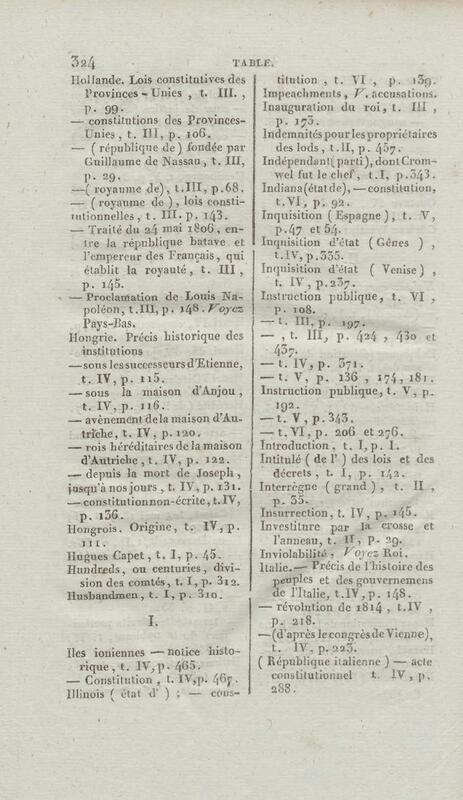 324
TABLE.
Hollande. Lois constitutives des
Provinces-Unies, t. III. ,
p. 99.
— constitutions des Provinces-
Unies, t. III, p. 106.
— ( république de ) fondée par
Guillaume de Nassau, t. III,
p. 29.
—( royaume de), t.III, p.68.
— ( royaume de ), lois consti-
tutionnelles, t. III. p. 143.
— Traité du 24 mai 1806, en-
tre la république batave et
l'empereur des Français, qui
établit la royauté, t. III ,
p. 145.
— Proclamation de Louis Na-
poléon, t.III, p. 148. Voyez
Pays-Bas.
Hongrie. Précis historique des
institutions
—sous les successeurs d'Etienne,
t. IV, p. 115.
—sous la maison d'Anjou,
t. IV, p. 116.
— avènement de la maison d'Au-
triche, t. IV, p. 120.
— rois héréditaires de la maison
d'Autriche, t. IV, p. 122.
— depuis la mort de Joseph,
jusqu'à nos jours, t. IV, p. 131.
—constitution non-écrite, t.IV,
p. 136.
Hongrois. Origine, t. IV, p.
111.
Hugues Capet, t. I, p. 45.
Hundreds, ou centuries, divi-
sion des comtés, t. I, p. 312.
Husbandmen, t. I, p. 310.
I.
Iles ioniennes — notice histo-
rique, t. IV, p. 465.
— Constitution, t. IV, p. 467.
Illinois ( état d' ) ; — cons-
titution, t. VI, p. 139.
Impeachments, V. accusations.
Inauguration du roi, t. III ,
p. 173.
Indemnités pour les propriétaires
des lods, t. II, p. 457.
Indépendant (parti), dont Crom-
wel fut le chef, t. I, p.343.
Indiana (état de), —constitution,
t. VI, p. 92.
Inquisition ( Espagne ), t. V,
p.47 et 54.
Inquisition d'état ( Gênes ) ,
t.IV, p.335.
Inquisition d'état ( Venise ) ,
t. IV, p.237.
Instruction publique, t. VI ,
p. 108.
—t. III, p. 197.
— , t. III, p. 424 , 430 et
437.
—t. IV, p. 371.
—t. V, p. 136 , 174, 181.
Instruction publique, t. V, p.
192.
—t. V, p.343.
—t. VI, p. 206 et 276.
Introduction, t. I, p. I.
Intitulé ( de l' ) des lois et des
décrets, t. I, p. 142.
Interrègne ( grand ) , t. II ,
p. 33.
Insurrection, t. IV, p. 145.
Investiture par la crosse et
l'anneau, t. II, p. 29.
Inviolabilité, Voyez Roi.
Italie.— Précis de l'histoire des
peuples et des gouvernemens
de l'Italie, t.IV, p. 148.
— révolution de 1814 , t.IV ,
p. 218.
—(d'après le congrès de Vienne),
t. IV, p. 223.
( République italienne ) — acte
constitutionnel t. IV, p.
288.